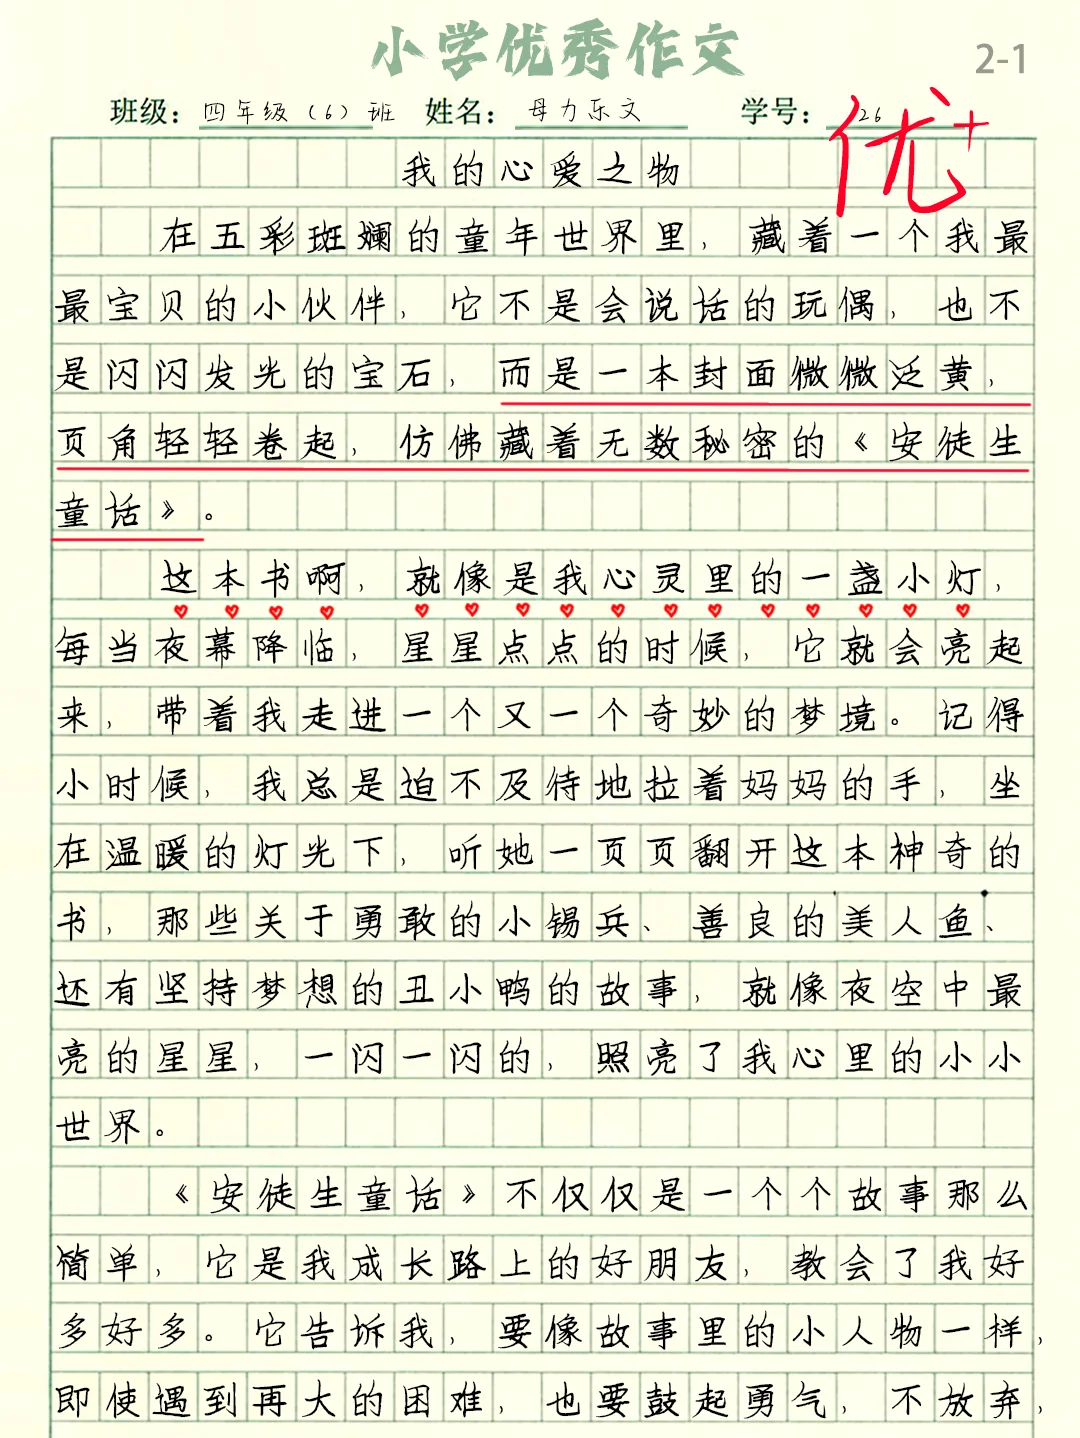 小学优秀作文
2-1
班级：四年级（6）班 姓名：母力乐文 学号：26
优+
我的心爱之物
在五彩斑斓的童年世界里，藏着一个我最
最宝贝的小伙伴，它不是会说话的玩偶，也不
是闪闪发光的宝石，而是一本封面微微泛黄，
页角轻轻卷起，仿佛藏着无数秘密的《安徒生
童话》。
这本书啊，就像是我心灵里的一盏小灯，
每当夜幕降临，星星点点的时候，它就会亮起
来，带着我走进一个又一个奇妙的梦境。记得
小时候，我总是迫不及待地拉着妈妈的手，坐
在温暖的灯光下，听她一页页翻开这本神奇的
书，那些关于勇敢的小锡兵、善良的美人鱼、
还有坚持梦想的丑小鸭的故事，就像夜空中最
亮的星星，一闪一闪的，照亮了我心里的小小
世界。
《安徒生童话》不仅仅是一个个故事那么
简单，它是我成长路上的好朋友，教会了我好
多好多。它告诉我，要像故事里的小人物一样，
即使遇到再大的困难，也要鼓起勇气，不放弃，